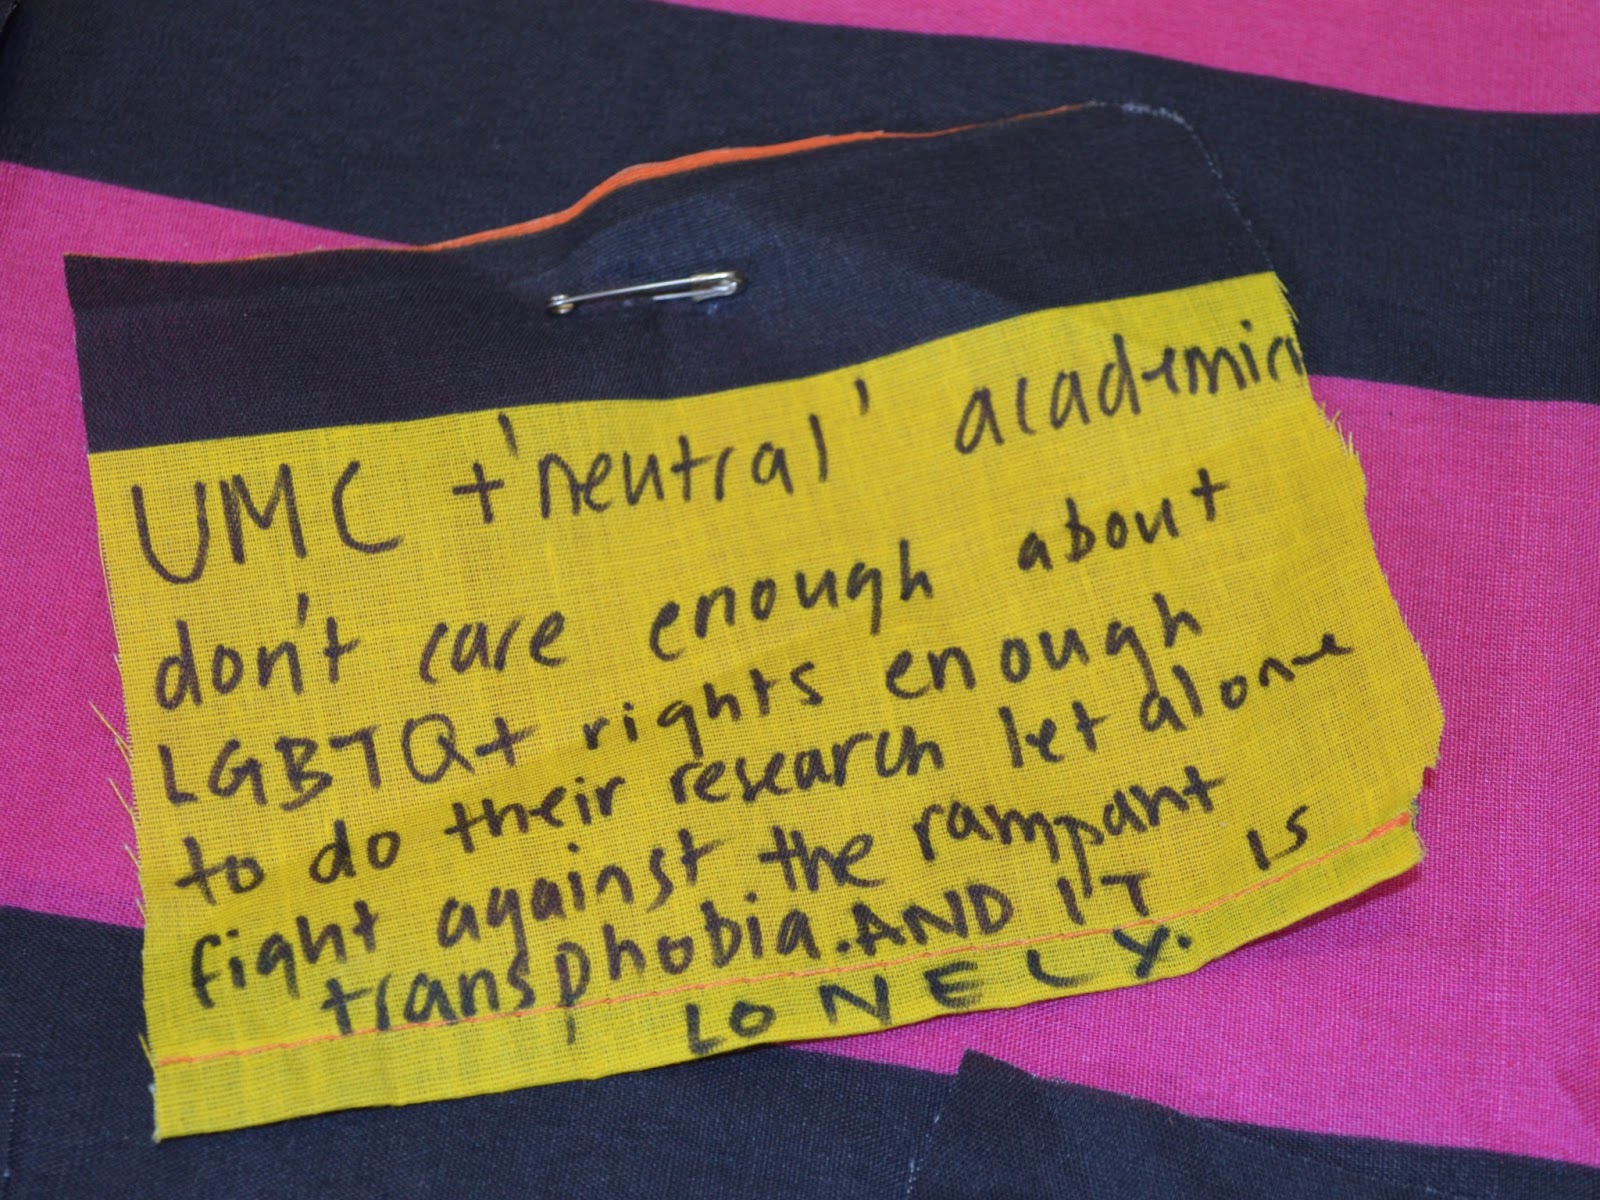 UMC + 'neutral' academics
don't care enough about
LGBTQ+ rights enough
to do their research let alone
fight against the rampant
transphobia. AND IT IS
LONELY.